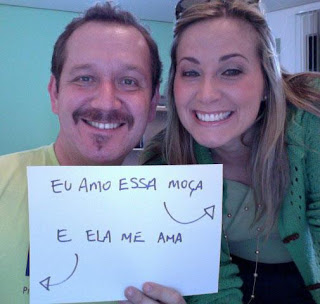 EU AMO ESSA MOÇA
E ELA ME AMA